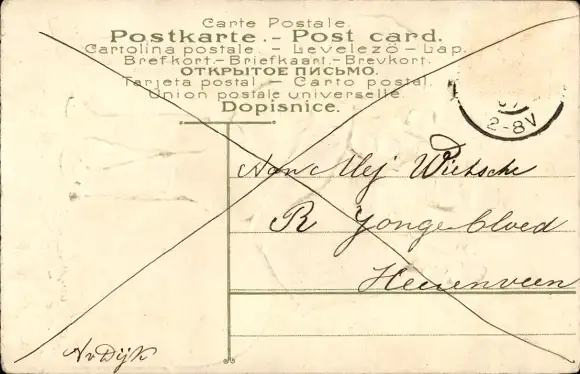 Carte Postale.
Postkarte. - Post card.
Cartolina postale. - Levelezö - Lap.
Brefkort. - Briefkaart. - Brevkort.
ОТКРЫТОЕ ПИСЬМО.
Tarjeta postal - Carto postal.
Union postale universelle.
Dopisnice.
07
2-8V
Aan Mej Wietsche
R Jongebloed
Heerenveen
A v Dijk